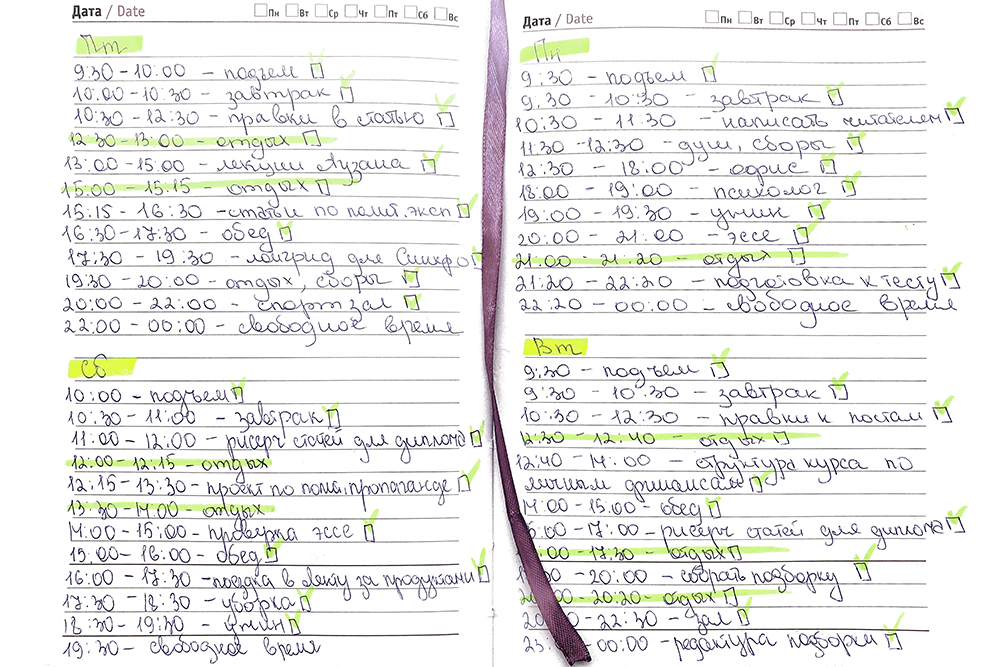 Дата / Date Пн Вт Ср Чт Пт Сб Вс
Пт
9:30 - 10:00 - подъем
10:00 - 10:30 - завтрак
10:30 - 12:30 - правки в статью
12:30 - 13:00 - отдых
13:00 - 15:00 - лекции Лузана
15:00 - 15:15 - отдых
15:15 - 16:30 - статьи по полит. эксп
16:30 - 17:30 - обед
17:30 - 19:30 - лонгрид для
19:30 - 20:00 - отдых, сборы
20:00 - 22:00 - спортзал
22:00 - 00:00 - свободное время
Сб
10:00 - подъем
10:30 - 11:00 - завтрак
11:00 - 12:00 - рисерч статей для диплома
12:00 - 12:15 - отдых
12:15 - 13:30 - проект по полит. пропаганде
13:30 - 14:00 - отдых
14:00 - 15:00 - проверка эссе
15:00 - 16:00 - обед
16:00 - 17:30 - поездка в Ленту за продуктами
17:30 - 18:30 - уборка
18:30 - 19:30 - ужин
19:30 - свободное время
Дата / Date Пн Вт Ср Чт Пт Сб Вс
Пн
9:30 - подъем
9:30 - 10:30 - завтрак
10:30 - 11:30 - написать читателем
11:30 - 12:30 - душ, сборы
12:30 - 18:00 - офис
18:00 - 19:00 - психолог
19:00 - 19:30 - ужин
20:00 - 21:00 - эссе
21:00 - 21:20 - отдых
21:20 - 22:20 - подготовка к тесту
22:20 - 00:00 - свободное время
Вт
9:30 - подъем
9:30 - 10:30 - завтрак
10:30 - 12:30 - правки к постам
12:30 - 12:40 - отдых
12:40 - 14:00 - структура курса по
личным финансам
14:00 - 15:00 - обед
15:00 - 17:00 - рисерч статей для диплома
:00 - 17:30 - отдых
:30 - 20:00 - собрать подборку
:00 - 20:20 - отдых
- 22:30 - зал
23: 00:00 - редактура подборки